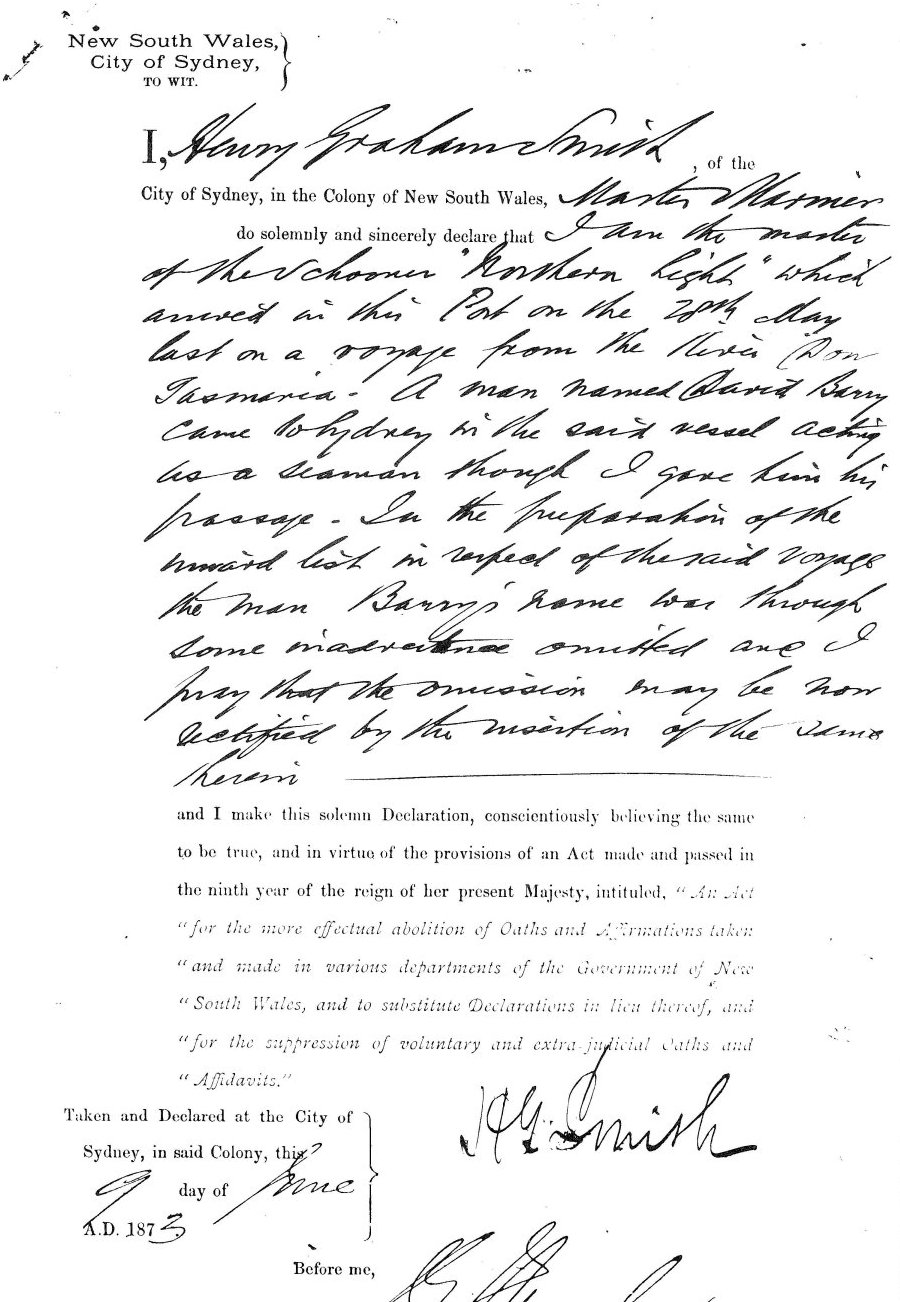 New South Wales,
City of Sydney,
TO WIT.
I, Henry Graham Smith, of the
City of Sydney, in the Colony of New South Wales, Master Mariner
do solemnly and sincerely declare that I am the master
of the Schooner "Northern Light" which
arrived in this Port on the 28th May
last on a voyage from the River Don
Tasmania - A man named David Barry
came to Sydney in the said vessel acting
as a seaman though I gave him his
passage - In the preparation of the
inward list in respect of the said voyage
the man Barry's name was through
some inadvertence omitted and I
pray that the omission may be now
rectified by the insertion of the same
therein
and I make this solemn Declaration, conscientiously believing the same
to be true, and in virtue of the provisions of an Act made and passed in
the ninth year of the reign of her present Majesty, intituled, "An Act
"for the more effectual abolition of Oaths and Affirmations taken
"and made in various departments of the Government of New
"South Wales, and to substitute Declarations in lieu thereof, and
"for the suppression of voluntary and extra-judicial Oaths and
"Affidavits."
H G Smith
Taken and Declared at the City of
Sydney, in said Colony, this
9 day of June
A.D. 1873.
Before me,